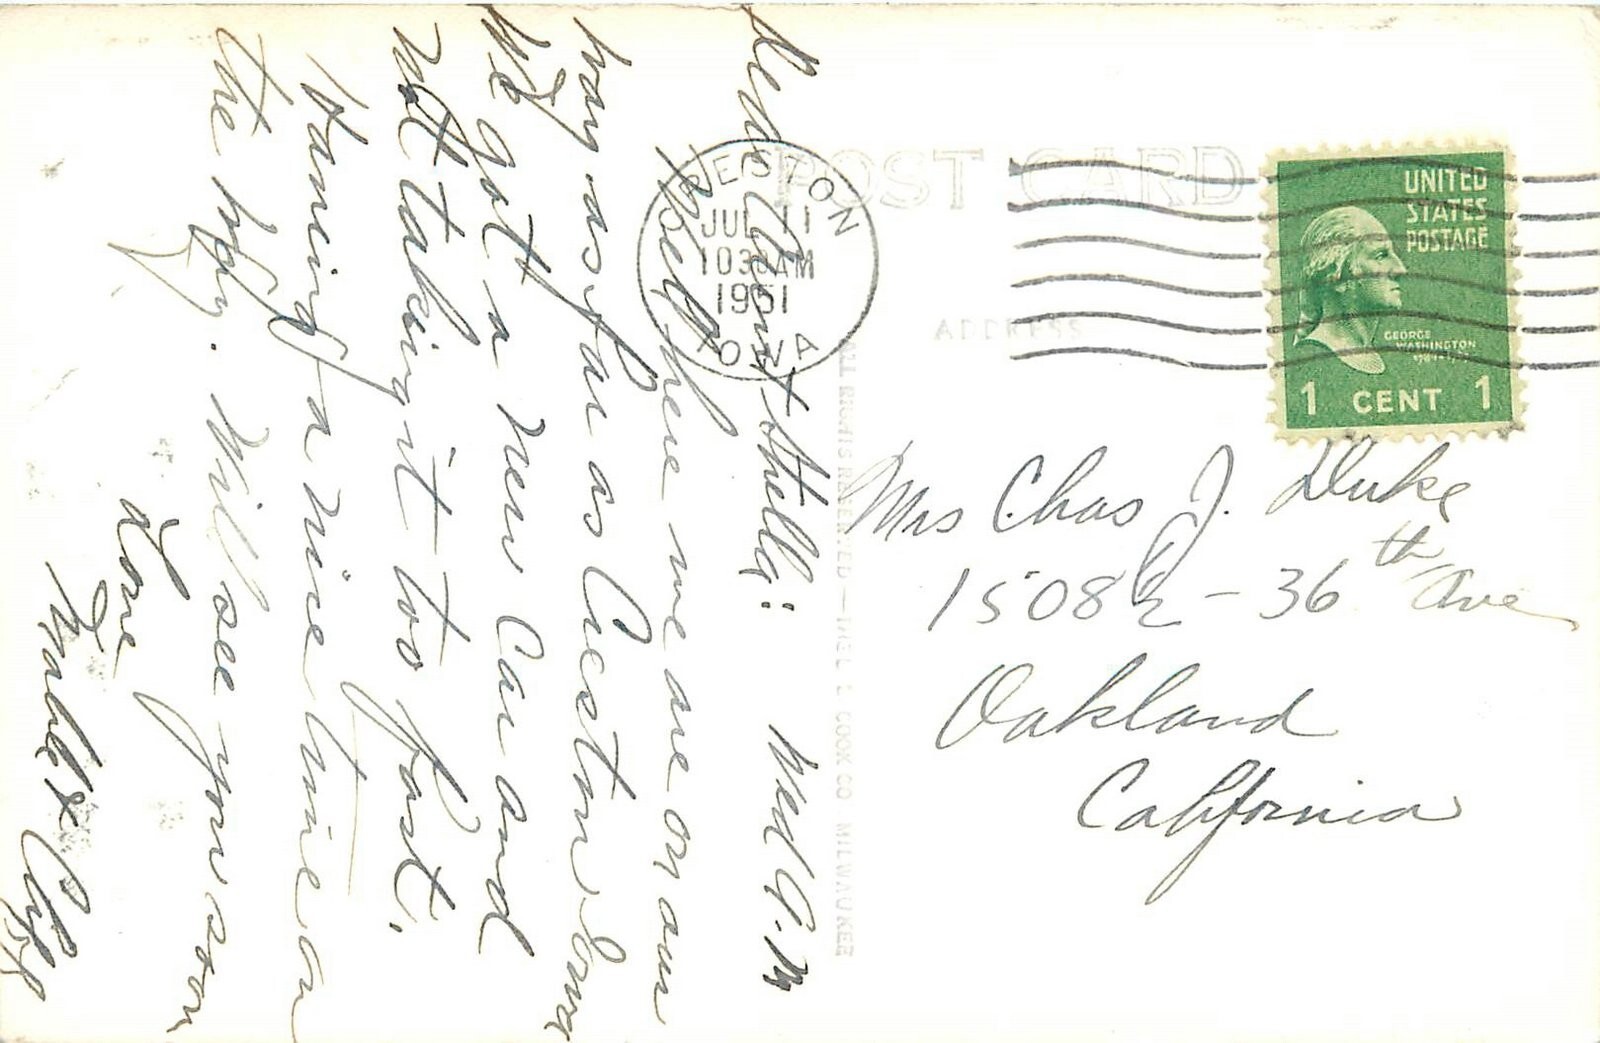 Wed A.M
Dear Aunt Stella:
Well here we are on our
way as far as Creston Iowa
We got a new Car and
not taking it too fast.
Having a nice time on
the way. Will see you soon
Love
Mable &
POST CARD
ADDRESS
CRESTON
JUL 11
1030AM
1951
IOWA
UNITED
STATES
POSTAGE
GEORGE
WASHINGTON
1 CENT 1
Mrs Chas J. Duke
1508½ - 36th Ave
Oakland
California
ALL RIGHTS RESERVED — COOK CO MILWAUKEE